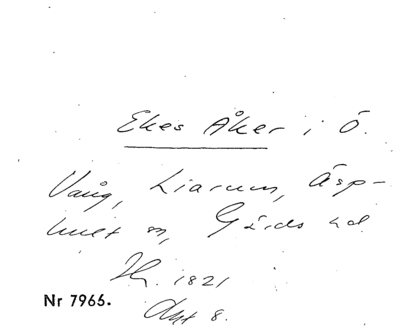 Ekes Åker i Ö.
Vång, Liarum, Äsp-
hult sn, Gärds hd
Hr. 1821
Nr 7965.
Akt 8.